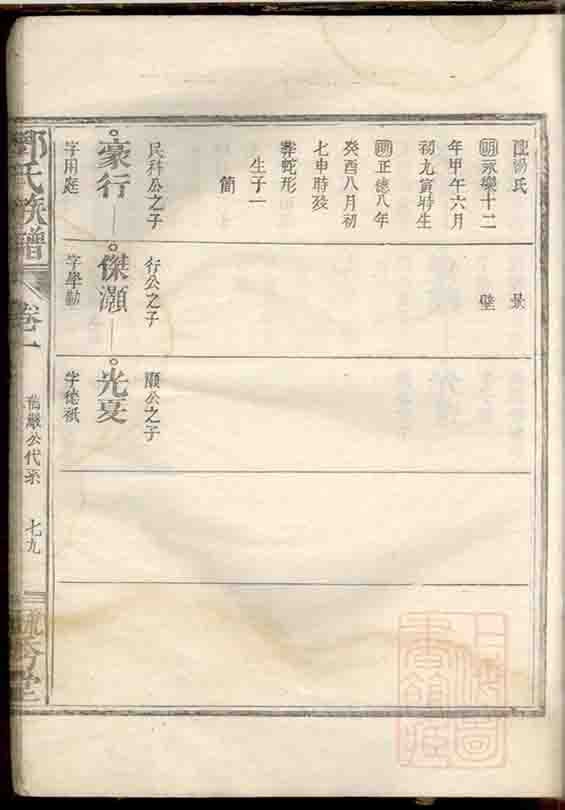 陳楊氏
明永樂十二
年甲午六月
初九寅時生
明正德八年
癸酉八月初
七申時殁
葬蛇形
生子一
簡
景
璧
民科公之子
豪行
字用庭
行公之子
傑灝
字學勤
灝公之子
光夏
字德祇
鄧氏族譜
卷一
巖公代系
七九